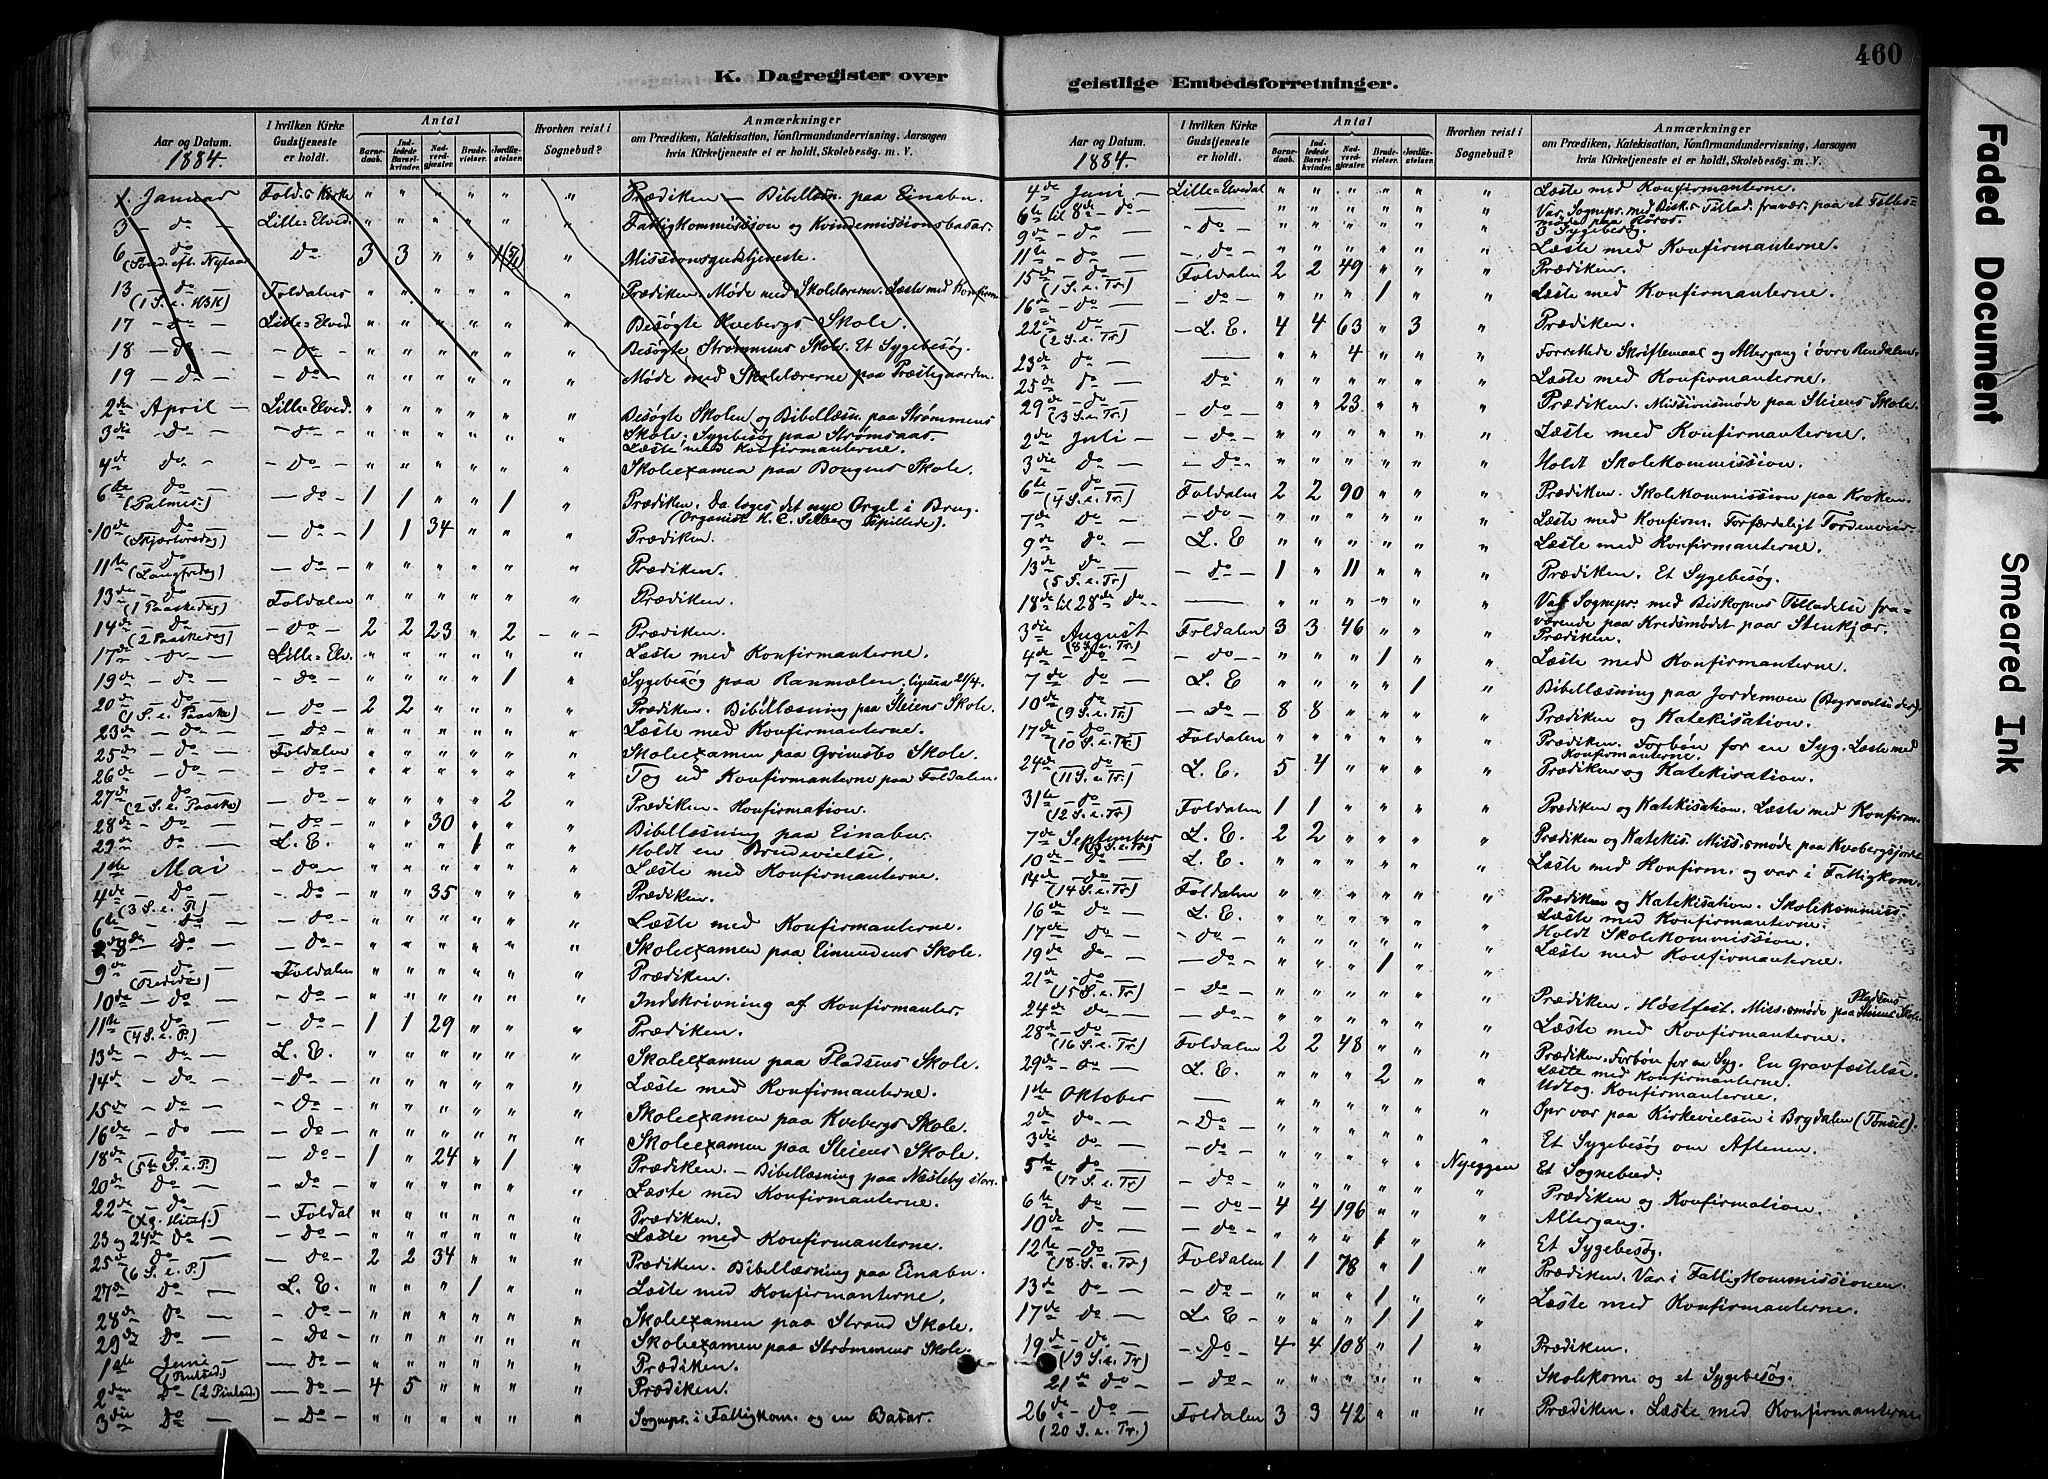 460
K. Dagregister over
Aar og Datum. 1884. | I hvilken Kirke Gudstjeneste er holdt. | Antal Barnedaab. | Indledede Barselkvinder. | Nadverdgjæster. | Brudevielser. | Jordfæstelser. | Hvorhen reist i Sognebud? | Anmærkninger om Prædiken, Katekisation, Konfirmandundervisning, Aarsagen hvis Kirketjeneste ei er holdt, Skolebesøg. m. V.
1. Januar Fold-s Kirke " " " " " " Prædiken – Bibellæsn. paa Einabu.
3 – do – Lille-Elved. " " " " " " Fattigkommission og Kvindemissionsbasar.
6 do (Sønd. eft. Nytaar) do 3 3 " " " Missionsgudstjeneste.
13 – do – (1 S. e. H3K) Foldalens " " " " " " Prædiken. Møde med Skolelærerne. Læste med Konfirm.
17 – do – Lille-Elved. " " " " " " Besøgte Kvebergs Skole.
18 – do – – do – " " " " " " Besøgte Strømmens Skole. Et Sygebesøg.
19 – do – – do – " " " " " " Møde med Skolelærerne paa Præstegaarden.
2den April – Lille-Elved. " " " " " " Besøgte Skolen og Bibellæsn. paa Strømmens
3die – do – – do – " " " " " " Skole; Sygebesøg paa Strømsaas.
Læste med Konfirmanterne.
4de do – – do – " " " " " " Skoleexamen paa Bougens Skole.
6te – do – (Palmes.) – do – 1 1 " " 1 " Prædiken. Da toges det nye Orgel i Brug.
(Organist H. C. Selberg spillede).
10de do (Skjærtorsdag) – do – 1 1 34 " " " Prædiken.
11te – do – (Langfredag) – do – " " " " " " Prædiken.
13de – do – (1 Paaskedag) Foldalen " " " " " " Prædiken.
14de – do – (2 Paaskedag) – do – 2 2 23 " 2 – " – Prædiken.
17de – do – Lille-Elv. " " " " " " Læste med Konfirmanterne.
19de – do – – do – " " " " 1 " Sygebesøg paa Ranmælen, ligesaa 21/4.
20de – do – (1 S. e. Paaske) – do – 2 2 " " " " Prædiken. Bibellæsning paa Steiens Skole.
23de – do – – do – " " " " " " Læste med Konfirmanterne.
25de – do – Foldalen " " " " " " Skoleexamen paa Grimsbo Skole.
26de – do – – do – " " " " " " Tog ud Konfirmanterne paa Foldalen.
27de – do – (2 S. e. Paaske) – do – " " " " 2 " Prædiken – Konfirmation.
28de – do – – do – " " 30 " " " Bibellæsning paa Einabu.
29de do – L. E. " " " 1 " " Holdt en Brudevielse.
1ste Mai – do – " " " " " " Læste med Konfirmanterne.
4de – do – (3 S. e. P.) – do – " " 35 " " " Prædiken.
6te – do – – do – " " " " " " Læste med Konfirmanterne.
8de – do – – do – " " " " " " Skoleexamen paa Eimundens Skole.
9de – do – (Bededag) Foldalen " " " " " " Prædiken.
10de – do – – do – " " " " " " Indskrivning af Konfirmanter.
11te – do – (4 S. e. P.) – do – 1 1 29 " " " Prædiken.
13de – do – L. E. " " " " " " Skoleexamen paa Pladsens Skole.
14de – do – – do – " " " " " " Læste med Konfirmanterne.
15de – do – – do – " " " " " " Skoleexamen paa Kvebergs Skole.
16de – do – – do – " " " " " " Skoleexamen paa Steiens Skole.
18de – do – (5te S. e. P.) – do – 1 " 24 " 1 " Prædiken. – Bibellæsning paa Næsteby store.
20de – do – – do – " " " " " " Læste med Konfirmanterne.
22de – do – – Foldal " " " " " " Prædiken.
23 og 24de do – – do – " " " " " " Læste med Konfirmanterne.
25de do – (6 S. e. P.) – do – 2 2 34 " " " Prædiken. Bibellæsning paa Einabu.
27de do – L. E. " " " 1 " " Læste med Konfirmanterne.
28de do – – do – " " " " " " Skoleexamen paa Strand Skole.
29de do – – do – " " " " " " Skoleexamen paa Strømmens Skole.
1ste Juni – (Pintsed.) – do – " " " " " " Prædiken.
2den do (2 Pintsed.) – do – 4 5 " " " " Prædiken.
3die do – do – " " " " " " Sognepr. i Fattigkom. og en Basar.
geistlige Embedsforretninger.
Aar og Datum. 1884. | I hvilken Kirke Gudstjeneste er holdt. | Antal Barnedaab. | Indledede Barselkvinder. | Nadverdgjæster. | Brudevielser. | Jordfæstelser. | Hvorhen reist i Sognebud? | Anmærkninger om Prædiken, Katekisation, Konfirmandundervisning, Aarsagen hvis Kirketjeneste ei er holdt, Skolebesøg. m. V.
4de Juni – Lille-Elvedal " " " " " " Læste med Konfirmanterne.
6te til 8de – do – " " " " " " Var Sognepr. med Bisk.s Tillad. fravær. paa et Fællesmøde paa Røros.
9de – do – – do – " " " " " " 3 Sygebesøg.
11te – do – – do – " " " " " " Læste med Konfirmanterne.
15de – do – (1 S. e. Tr.) Foldalen 2 2 49 " " " Prædiken.
16de – do – – do – " " " 1 " " Læste med Konfirmanterne.
22de do – (2 S. e. Tr.) – L. E. 4 4 63 " 3 " Prædiken.
23de do – — " " 4 " " " Forrettede Skriftemaal og Altergang i øvre Rendalen.
25de do – do – " " " " " " Læste med Konfirmanterne.
29de – do – (3 S. e. Tr.) – do – " " 23 " " " Prædiken. Missionsmøde paa Steiens Skole.
2de Juli – – do – " " " " " " Læste med Konfirmanterne.
3die do – – do – " " " " " " Holdt Skolekommission.
6te – do – (4 S. e. Tr.) Foldalen 2 2 90 " " " Prædiken. Skolekommission paa Kroken.
7de do – – do – " " " " " " Læste med Konfirm. Forfærdeligt Tordenveir.
9de do – L. E " " " " " " Læste med Konfirmanterne.
13de do – (5 S. e. Tr) – do – 1 " 11 " " " Prædiken. Et Sygebesøg.
18de til 28de do – — " " " " " " Var Sognepr. med Biskopens Tilladelse fraværende paa Kredsmødet paa Stenkjær.
3die August (8 S. e. Tr.) Foldalen 3 3 46 " " " Prædiken.
4de – do – – do – " " " 1 " " Læste med Konfirmanterne.
7de do – L. E " " " " 1 " Bibellæsning paa Jordemoen (Begravelse der).
10de do – (9 S. e. Tr.) – do – 8 8 " " " " Prædiken og Katekisation.
17de – do – (10 S. e. Tr.) Foldalen " " " " " " Prædiken. Forbøn for en Syg. Læste med Konfirmanterne.
24de do – (11 S. e. Tr.) L. E. 5 4 " " " " Prædiken og Katekisation.
31te – do – (12 S. e. Tr.) Foldalen 1 1 " " " " Prædiken og Katekisation. Læste med Konfirm.
7de September (13 S. e. Tr.) L. E. 2 2 " " " " Prædiken og Katekis. Miss.smøde paa Kvebergsjorde
10de – do – L. E. " " " " " " Læste med Konfirm. og var i Fattigkom.
14de – do – (14 S. e. Tr.) Foldalen " " " " " " Prædiken og Katekisation. Skolekommiss.
16de do – L. E. " " " " " " Læste med Konfirmanterne.
17de do – – do – " " " " " " Holdt Skolekommission.
19de do – – do – " " " 1 " " Læste med Konfirmanterne.
21de – do (15 S. e. Tr) – do – " " " " " " Prædiken. Høstfest. Miss.smøde paa Pladsens Skole.
24de do – – do – " " " " " " Læste med Konfirmanterne.
28de – do – (16 S. e. Tr.) Foldalen 2 2 48 " " " Prædiken. Forbøn for en Syg. En Gravfæstelse.
Læste med Konfirmanterne.
29de – do – L. E. " " " 2 " " Udtog. Konfirmanterne.
1ste Oktober — " " " " " " Spr var paa Kirkevielsen i Brydalen (Tønset).
2de do – – do – " " " " " " Et Sygebesøg om Aftenen.
3die do – – do – " " " " " Nyeggen Et Sognebud.
5te do – (17 S. e. Tr.) – do – " " " " " " Prædiken og Konfirmation.
6te do – – do – 4 4 196 " " " Altergang.
10de do – – do – " " " 1 " " Et Sygebesøg.
12te – do – (18. S. e. Tr) Foldalen 1 1 78 " 1 " Prædiken. Var i Fattigkommissionen.
13de do – – do – " " " 1 " " Læste med Konfirmanterne.
17de do – L. E " " " 1 1
19de – do – (19 S. e. Tr) – do – 4 4 108 " 1 " Prædiken.
21de do – – do – " " " " " " Skolekom. og et Sygebesøg.
26de – do – (20 S. e. Tr.) Foldalen 3 3 42 " " " Prædiken. Læste med Konfirmanterne
Faded Document
Smeared Ink